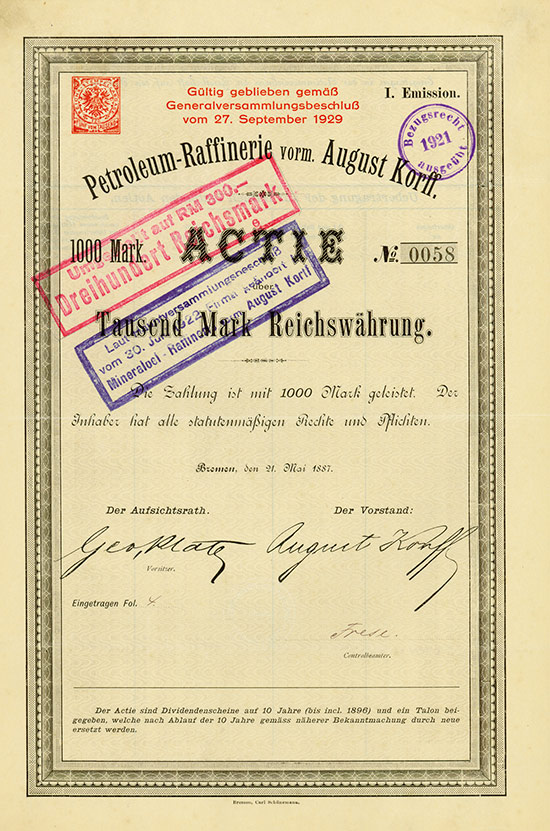 Gültig geblieben gemäß
Generalversammlungsbeschluß
vom 27. September 1929
I. Emission.
Bezugsrecht
1921
ausgeübt
Petroleum-Raffinerie vorm. August Korff.
Umgestellt auf RM 300.—
Dreihundert Reichsmark
1000 Mark.
ACTIE
№. 0058
über
Laut Generalversammlungsbeschluß
vom 30. Firma geändert in
Mineraloel-Raffinerie vorm. August Korff
Tausend Mark Reichswährung.
Die Zahlung ist mit 1000 Mark geleistet. Der
Inhaber hat alle statutenmäßigen Rechte und Pflichten.
Bremen, den 21. Mai 1887.
Der Aufsichtsrath.
Der Vorstand:
Geo. Plate
August Korff
Vorsitzer.
Eingetragen Fol. 4.
Frese.
Controlbeamter.
Der Actie sind Dividendenscheine auf 10 Jahre (bis incl. 1896) und ein Talon bei-
gegeben, welche nach Ablauf der 10 Jahre gemäss näherer Bekanntmachung durch neue
ersetzt werden.
Bremen, Carl Schünemann.